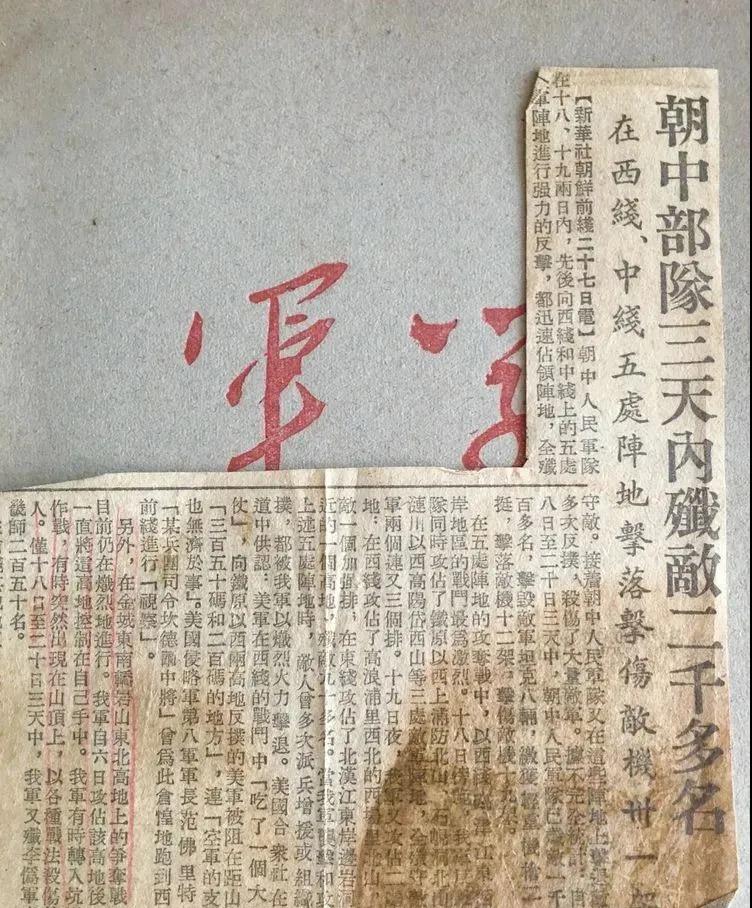 朝中部隊三天內殲敵二千多名
在西綫、中綫五處陣地擊落擊傷敵機卅一架
【新華社朝鮮前綫二十七日電】朝中人民軍隊
在十八、十九兩日內,先後向西綫和中綫上的五處
軍陣地進行强力的反擊,都迅速佔領陣地,全殲
守敵。接着朝中人民軍隊又在這些陣地上擊退
多次反撲,殺傷了大量敵軍。據不完全統計,自
八日至二十日三天中,朝中人民軍隊已殲敵一千
百多名,擊毀敵軍坦克八輛,繳獲輕重機槍二十
挺,擊落敵機十二架,擊傷敵機十九架。
在五處陣地的攻奪戰中,以西綫臨津江東西
岸地區的戰鬥最爲激烈。十八日傍晚,我軍
隊同時攻佔了鐵原以西上浦防北山、石幌洞北山
漣川以西高陽岱西山等三處敵軍陣地,全殲守敵
軍兩個連又三個排。十九日夜,我軍又攻佔二
地:在西綫攻佔了高浪浦里西北的西場里北山
敵一個加强排,在東綫攻佔了北漢江東岸邊岩
近的一個高地,殲敵九十多名。當我軍襲擊和攻
上述五處陣地時,敵人曾多次派兵增援或組織
撲,都被我軍以熾烈火力擊退。美國合衆社在
道中供認:美軍在西綫的戰鬥中「吃了一個大
仗」,向鐵原以西兩高地反撲的美軍被阻在距山
「三百五十碼和二百碼的地方」,連「空軍的支
也無濟於事」。美國侵略軍第八軍軍長范佛里特
「某兵團司令坎德爾中將」曾爲此倉惶地跑到西
前綫進行「視察」。
另外,在金城東南轎岩山東北高地上的爭奪戰
目前仍在熾烈地進行。我軍自六日攻佔該高地後
一直將這高地控制在自己手中。我軍有時轉入坑
作戰,有時突然出現在山頂上,以各種戰法殺傷
人。僅十八日至二十日三天中,我軍又殲李僞軍
幾師二百五十名。
軍